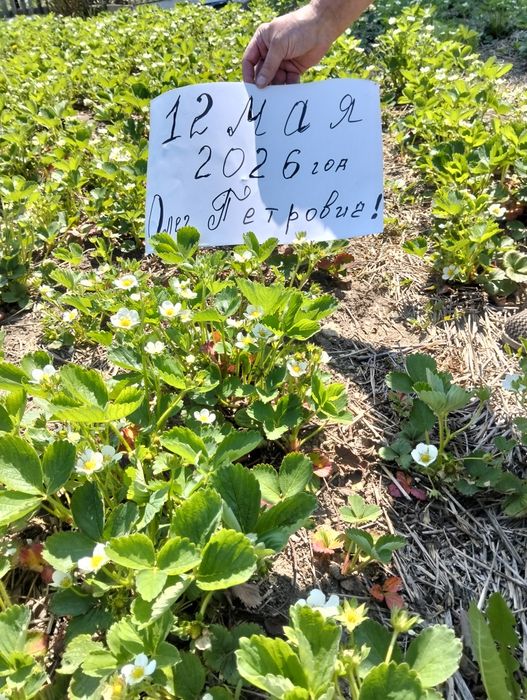 12 мая
2026 год
Олег Петрович!